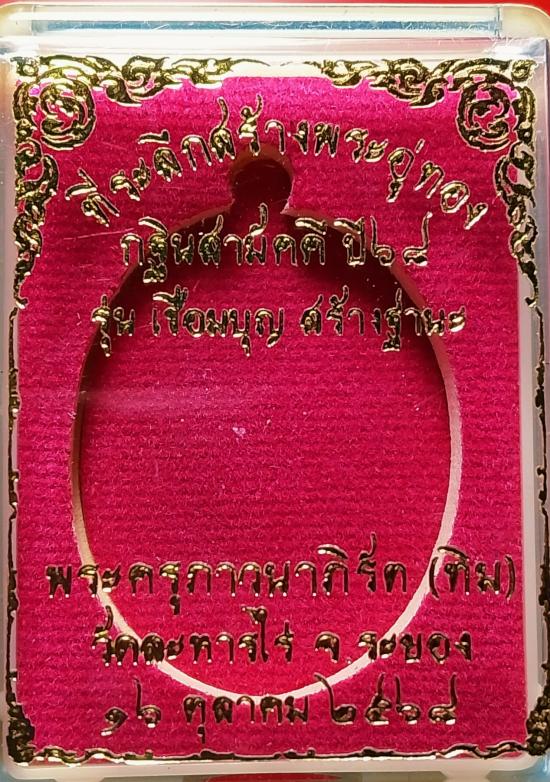 ที่ระลึกสร้างพระอู่ทอง
กฐินสามัคคี ปี๖๘
รุ่น เชื่อมบุญ สร้างฐานะ
พระครูภาวนาภิรัต (ทิม)
วัดละหารไร่ จ.ระยอง
๑๖ ตุลาคม ๒๕๖๘